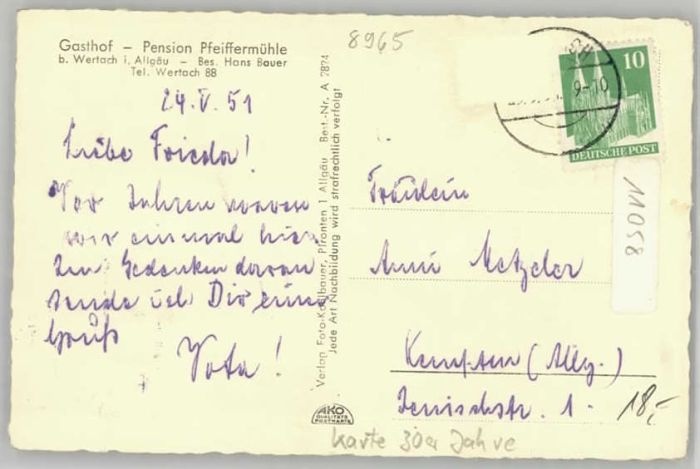 Gasthof – Pension Pfeiffermühle
b. Wertach i. Allgäu – Bes. Hans Bauer
Tel. Wertach 88
8965
24.V.51
Liebe Frieda!
Vor Jahren waren
wir einmal hier.
Zum Gedenken daran
sende ich Dir einen
Gruß
Vota!
Verlag Foto-Kohlbauer, Pfronten 1 Allgäu Best.-Nr. A 2874
Jede Art Nachbildung wird strafrechtlich verfolgt
9-10
10
DEUTSCHE POST
11058
Fräulein
Anni Metzeler
Kempten (Allg.)
1.
18,-
AKO
QUALITÄTS
POSTKARTE
Karte 30er Jahre